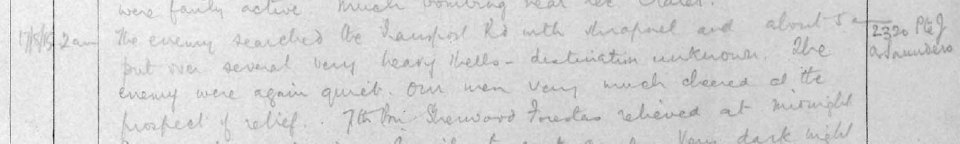 were fairly active Much bombing near the Crater.
17/5/15 2 am The enemy searched the Transport Rd with shrapnel and about 5 a 2320 Pte J
put over several very heavy shells - destination unknown. The a Saunders
enemy were again quiet. Our men very much cheered at the
prospect of relief. 7th Bn Sherwood Forestas relieved at midnight
Very dark night